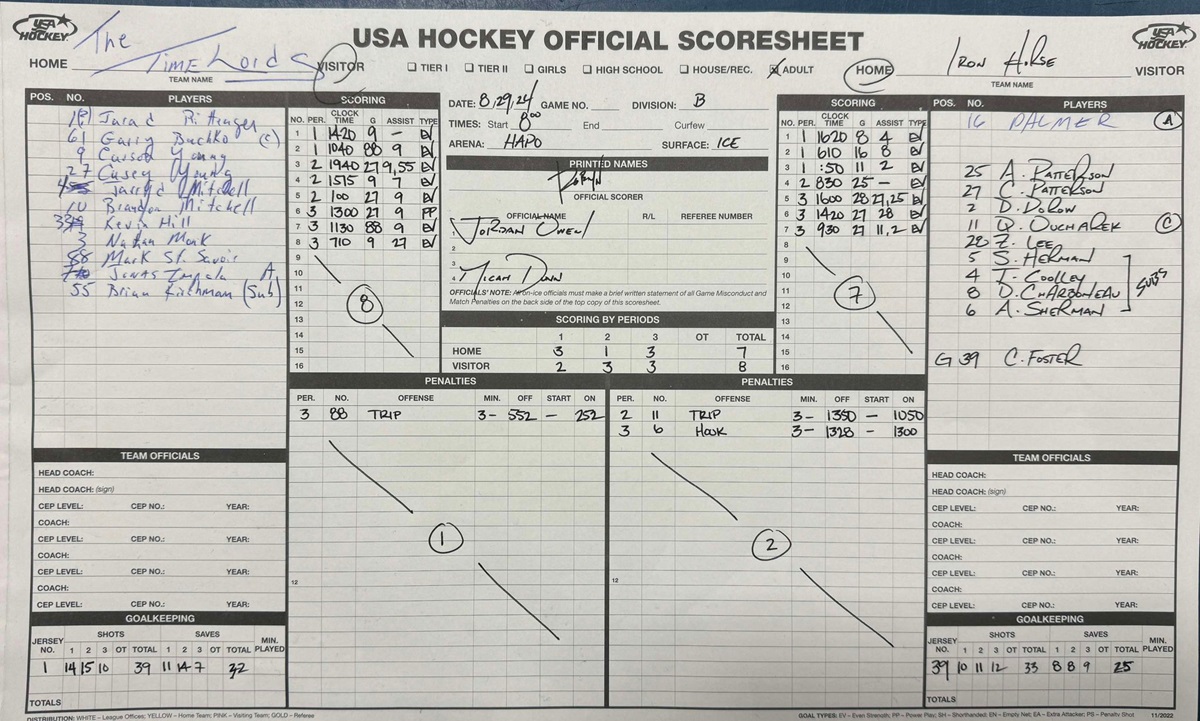 USA HOCKEY
USA HOCKEY OFFICIAL SCORESHEET
USA HOCKEY
HOME The Time Lords VISITOR
TEAM NAME
☐ TIER I ☐ TIER II ☐ GIRLS ☐ HIGH SCHOOL ☐ HOUSE/REC. ☒ ADULT
HOME Iron Horse VISITOR
TEAM NAME
POS. NO. PLAYERS
Jarad Rittenger
61 Garry Buchko (C)
9 Carson Young
27 Casey Young
Jarryd Mitchell
10 Brandon Mitchell
Kevin Hill
3 Nathan Mark
88 Mark St. Savoie
Jonas Impala A
55 Brian Kirchman (Sub)
SCORING
NO. PER. CLOCK TIME G ASSIST TYPE
1 1 1420 9 - EV
2 1 1040 88 9 EV
3 2 1940 27 9,55 EV
4 2 1515 9 7 EV
5 2 100 27 9 EV
6 3 1300 27 9 PP
7 3 1130 88 9 EV
8 3 710 9 27 EV
9
10
11
12
13
14
15
16
8
DATE: 8,29,24 GAME NO. DIVISION: B
TIMES: Start 8:00 End Curfew
ARENA: HAPO SURFACE: ICE
PRINTED NAMES
Robyn
OFFICIAL SCORER
OFFICIAL NAME R/L REFEREE NUMBER
1 Jordan Owen
2
3
4 Micah Dunn
OFFICIALS' NOTE: All on-ice officials must make a brief written statement of all Game Misconduct and
Match Penalties on the back side of the top copy of this scoresheet.
SCORING BY PERIODS
1 2 3 OT TOTAL
HOME 3 1 3 7
VISITOR 2 3 3 8
SCORING
NO. PER. CLOCK TIME G ASSIST TYPE
1 1 1620 8 4 EV
2 1 610 16 8 EV
3 1 :50 11 2 EV
4 2 830 25 - EV
5 3 1600 28 27,25 EV
6 3 1420 27 28 EV
7 3 930 27 11,2 EV
8
9
10
11
12
13
14
15
16
7
POS. NO. PLAYERS
16 PALMER (A)
25 A. PATTERSON
27 C. PATTERSON
2 D. DOROW
11 Q. OUCHAREK (C)
28 Z. LEE
5 S. HERMAN
4 T. COOLLEY
8 D. CHARBONEAU
6 A. SHERMAN
SUBS
G 39 C. FOSTER
PENALTIES
PER. NO. OFFENSE MIN. OFF START ON
3 88 TRIP 3- 552 - 252
12
1
PENALTIES
PER. NO. OFFENSE MIN. OFF START ON
2 11 TRIP 3- 1350 - 1050
3 6 HOOK 3- 1328 - 1300
12
2
TEAM OFFICIALS
HEAD COACH:
HEAD COACH: (sign)
CEP LEVEL: CEP NO.: YEAR:
COACH:
CEP LEVEL: CEP NO.: YEAR:
COACH:
CEP LEVEL: CEP NO.: YEAR:
COACH:
CEP LEVEL: CEP NO.: YEAR:
GOALKEEPING
JERSEY NO. SHOTS 1 2 3 OT TOTAL SAVES 1 2 3 OT TOTAL MIN. PLAYED
1 14 15 10 39 11 14 7 32
TOTALS
TEAM OFFICIALS
HEAD COACH:
HEAD COACH: (sign)
CEP LEVEL: CEP NO.: YEAR:
COACH:
CEP LEVEL: CEP NO.: YEAR:
COACH:
CEP LEVEL: CEP NO.: YEAR:
COACH:
CEP LEVEL: CEP NO.: YEAR:
GOALKEEPING
JERSEY NO. SHOTS 1 2 3 OT TOTAL SAVES 1 2 3 OT TOTAL MIN. PLAYED
39 10 11 12 33 8 8 9 25
TOTALS
DISTRIBUTION: WHITE – League Offices; YELLOW – Home Team; PINK – Visiting Team; GOLD – Referee
GOAL TYPES: EV – Even Strength; PP – Power Play; SH – Shorthanded; EN – Empty Net; EA – Extra Attacker; PS – Penalty Shot 11/2022